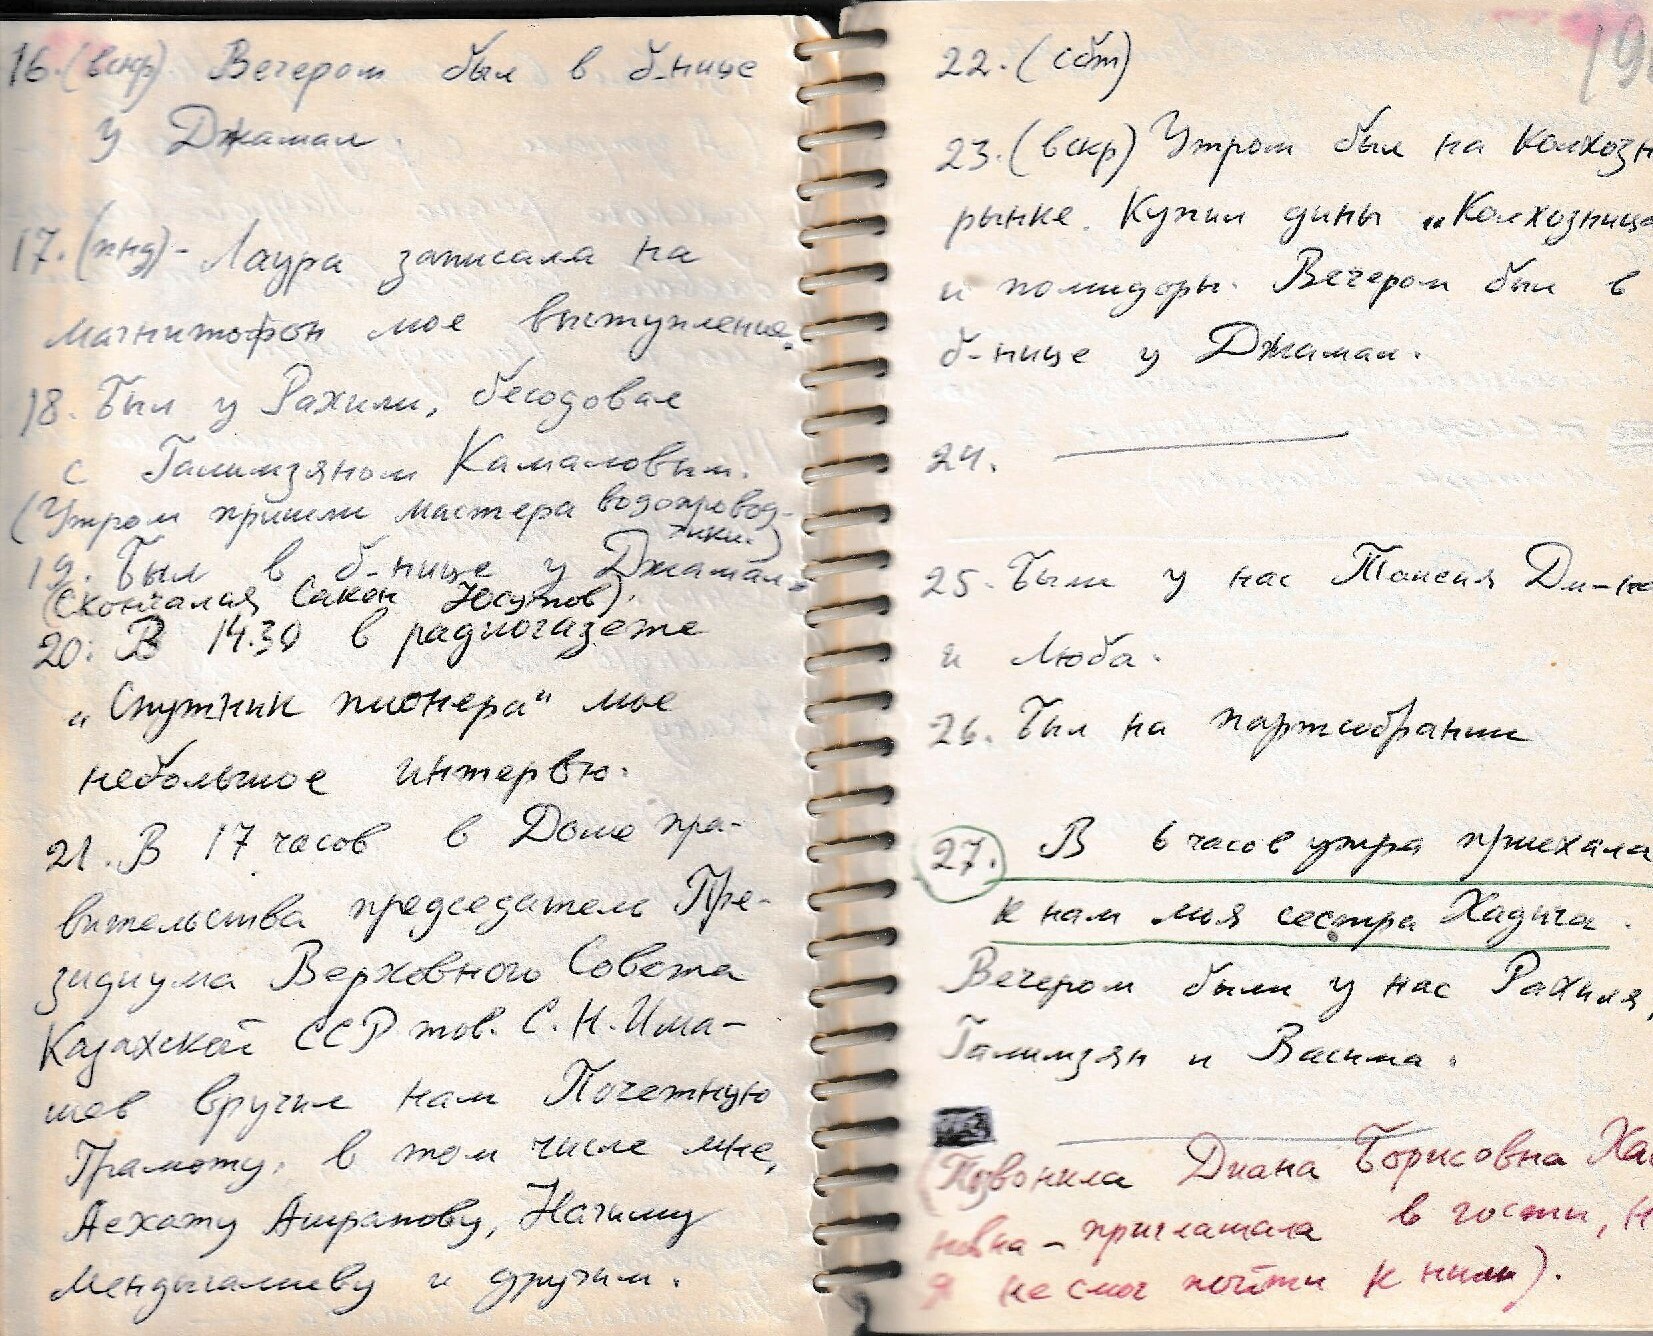 16. (вскр) Вечером был в б-нице
у Джамал.
17. (пнд) - Лаура записала на
магнитофон мое выступление.
18. Был у Рахили, беседовал
с Галимзяном Камаловым.
(Утром пришли мастера водопровод-
чики.)
19. Был в б-нице у Джамал.
(Скончался Сакен Юсупов).
20. В 14.30 в радиогазете
„Спутник пионера" мое
небольшое интервью.
21. В 17 часов в Доме пра-
вительства председатель Пре-
зидиума Верховного Совета
Казахской ССР тов. С. Н. Има-
шев вручил нам Почетную
Грамоту, в том числе мне,
Ашрапову, Нагиму
Мендыгалиеву и другим.
22. (сбт)
23. (вскр) Утром был на Колхозн
рынке. Купил дыни „Колхозница
и помидоры. Вечером был в
б-нице у Джамал.
24.
25. Были у нас Таисия Дм-на
и Люба.
26. Был на партсобрании
27. В 6 часов утра приехала
к нам моя сестра Хадича.
Вечером были у нас Рахиля,
Галимзян и Васима.
(Позвонила Диана Борисовна Ха
новна - приглашала в гости, н
я не смог пойти к ним).